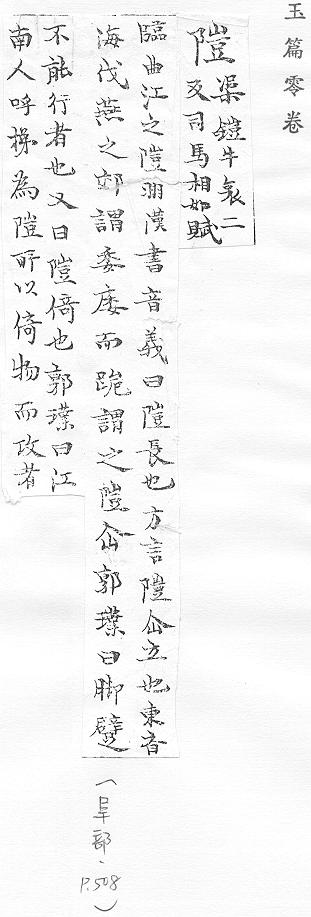 玉篇零卷
隑渠鎧牛哀二
反司馬相如賦
臨曲江之隑洲漢書音義曰隑長也方言隑仚立也東齊
海岱燕之郊謂委痿而跪謂之隑仚郭璞曰脚躄
不能行者也又曰隑倚也郭璞曰江
南人呼梯為隑所以倚物而改者
(阜部、P.508)